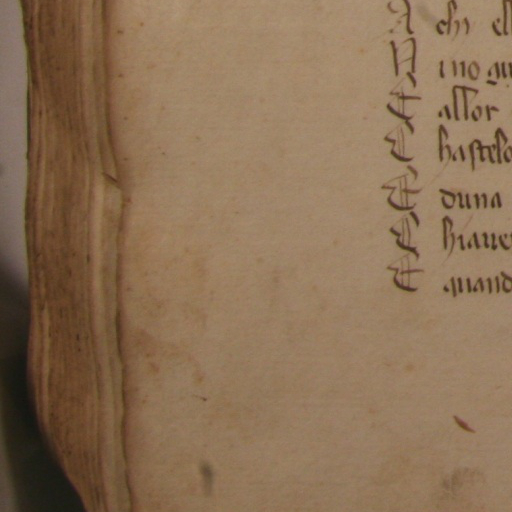 A chi ell
N ino qu
E allor
E hastelo
E duna
E hiarre
E quand